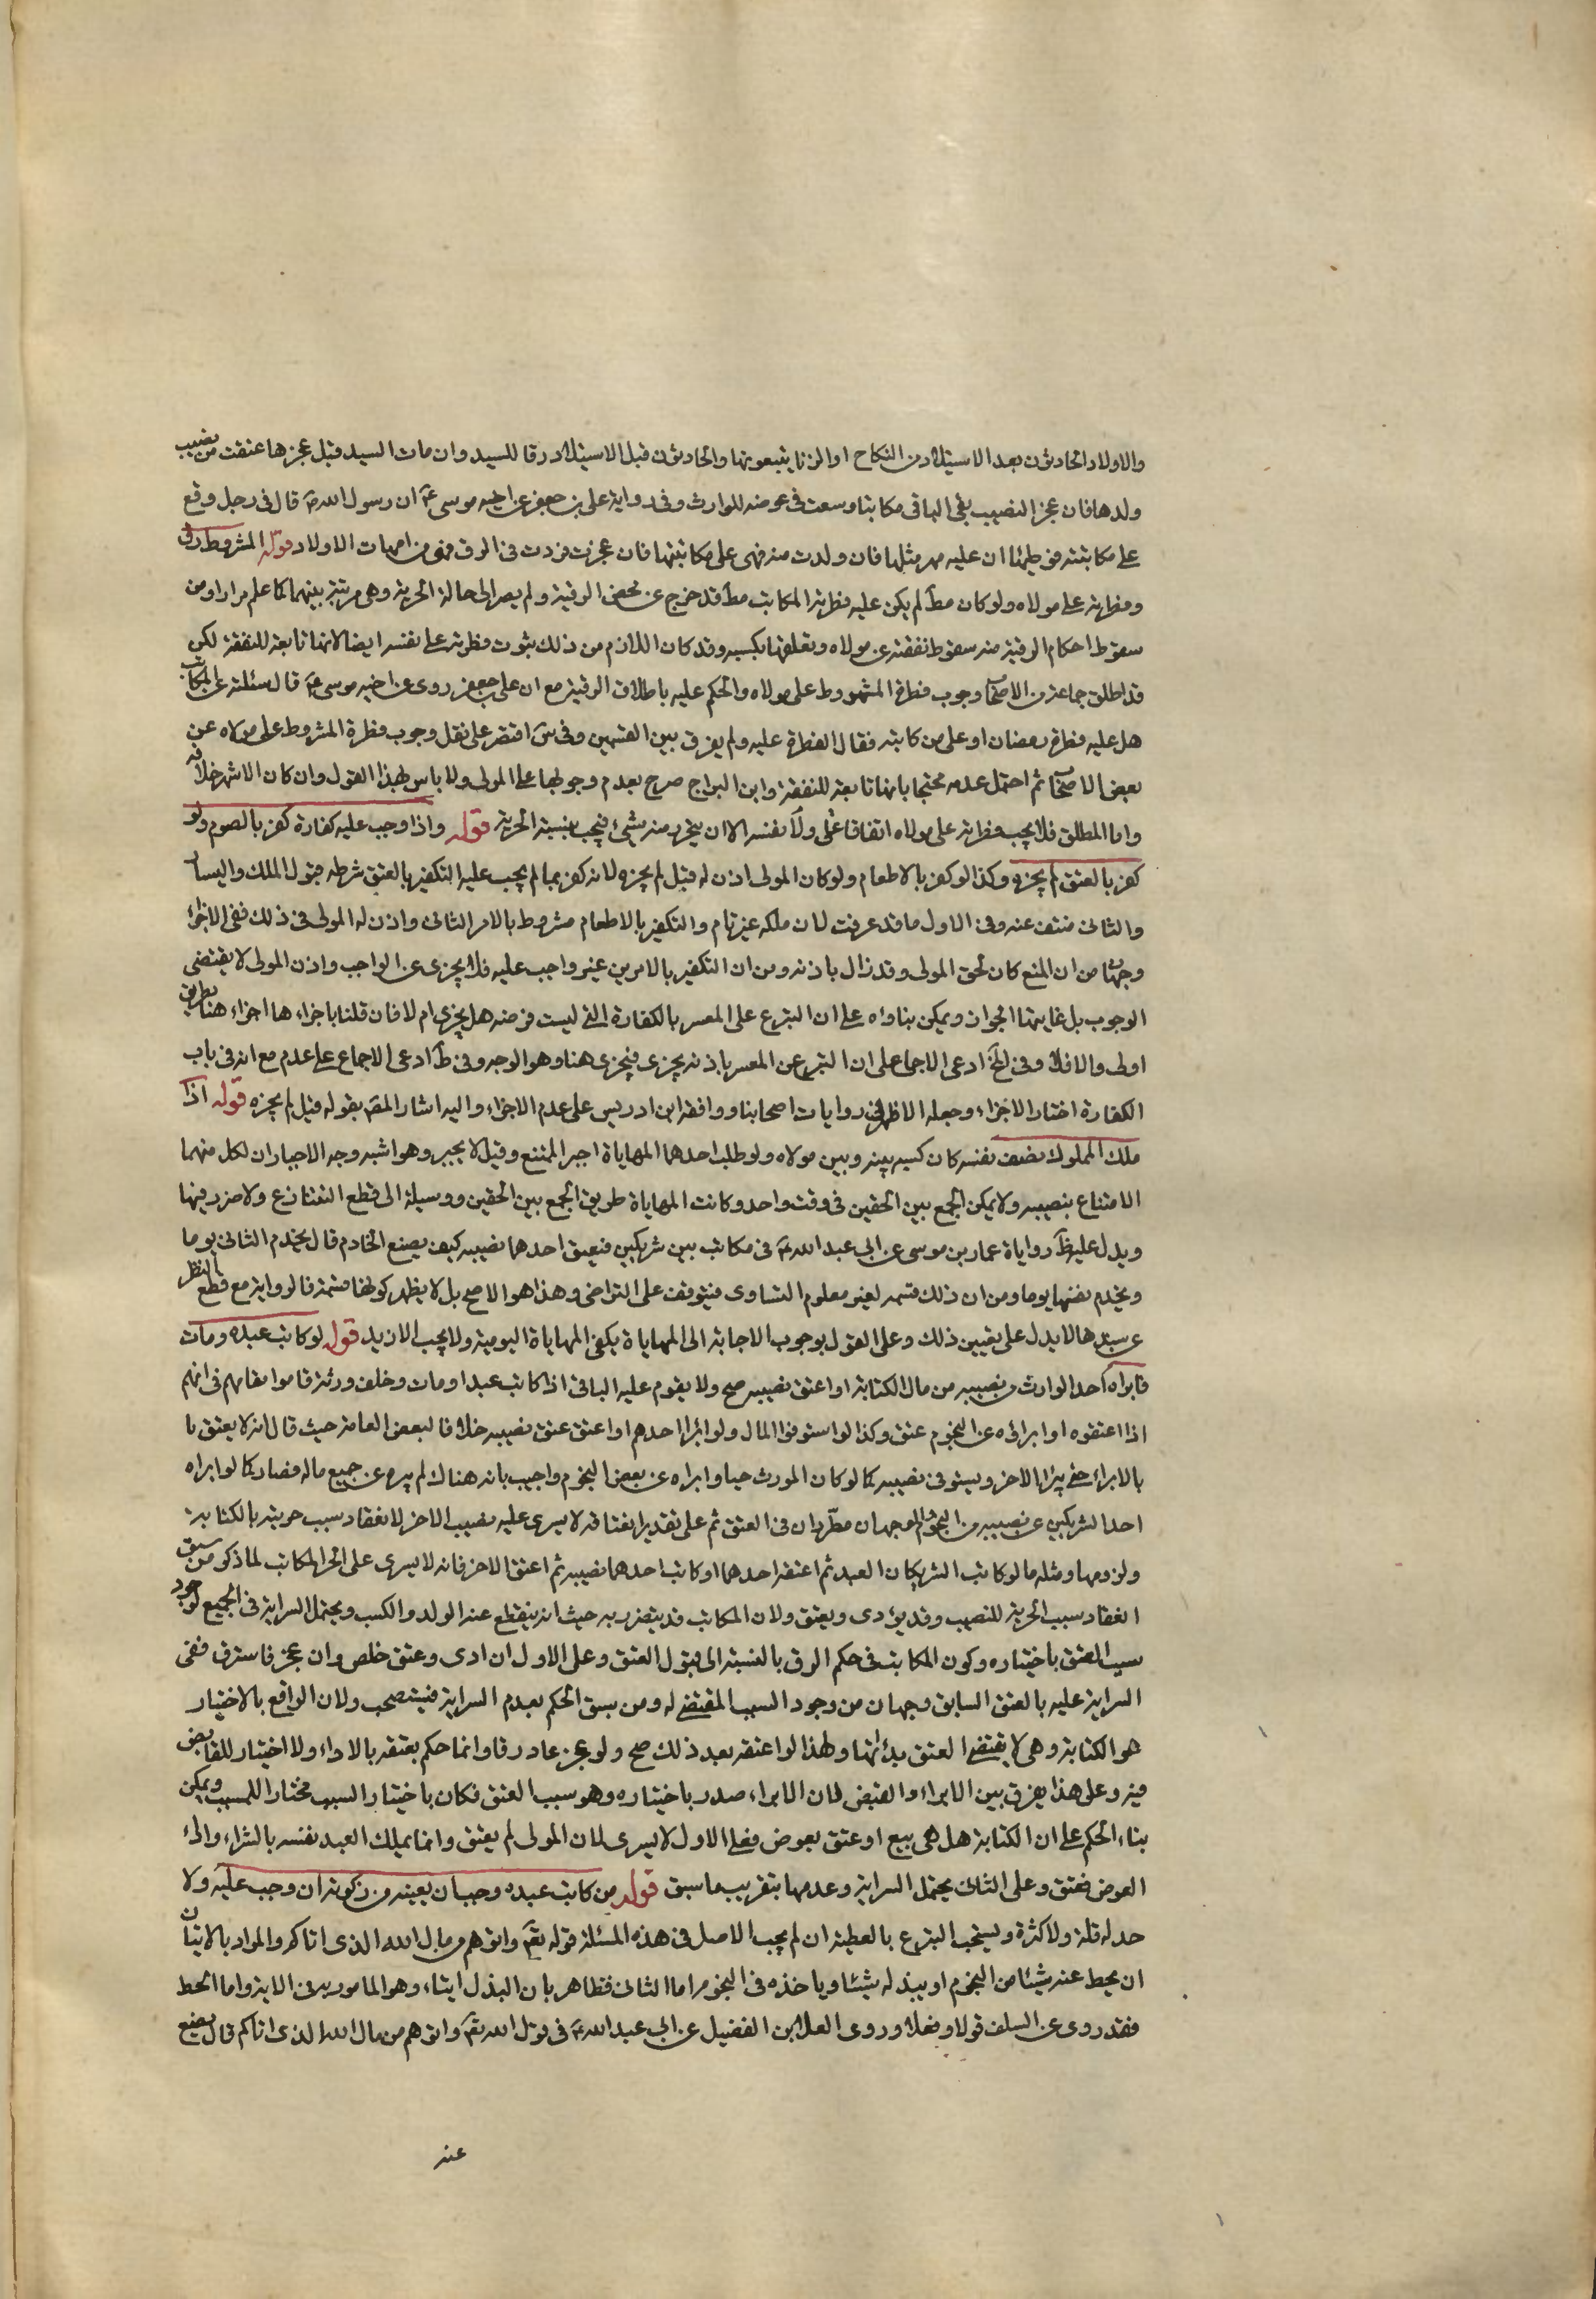 والاولاد الحادثون بعد الاستيلاد من النكاح او الزنا يتبعونها والحادثون قبل الاستيلاد رقا للسيد وان مات السيد قبل عجزها عتقت من نصيب
ولدها فان عجز النصيب بقى الباقى مكاتبا وسعت فى عوضه للوارث وفى رواية على بن جعفر عن اخيه موسى ع ان رسول الله ص قال فى رجل وقع
على مكاتبته فوطئها ان عليه مهر مثلها فان ولدت منه فهى على مكاتبتها فان عجزت فردت فى الرق فهى من امهات الاولاد قوله المشروط رق
وفطرته على مولاه ولو كان مط لم يكن عليه فطرته المكاتب مط قد خرج عن محض الرقية ولم يصر الى حالة الحرية وهى مرتبة بينهما كما علم مرارا ومن
سقوط احكام الرقية منه سقوط نفقته عن مولاه وتعلقها بكسبه وقد كان اللازم من ذلك ثبوت فطرته على نفسه ايضا لانها تابعة للنفقة لكن
قد اطلق جماعة من الاصحاب وجوب فطرة المشروط على مولاه والحكم عليه باطلاق الرقية مع ان على بن جعفر روى عن اخيه موسى ع قال سئلته عن المكاتب
هل عليه فطرة رمضان او على من كاتبه فقال الفطرة عليه ولم يفرق بين القسمين وفى س اقتصر على نقل وجوب فطرة المشروط على مولاه عن
بعض الاصحاب ثم احتمل عدمه محتجا بانها تابعة للنفقة وابن البراج صرح بعدم وجوبها على المولى ولا باس بهذا القول وان كان الاشهر خلافه
واما المطلق فلا يجب فطرته على مولاه اتفاقا ولا على نفسه الا ان يتحرر منه شىء فيجب بنسبة الحرية قوله واذا وجب عليه كفارة كفر بالصوم ولو
كفر بالعتق لم يجزه وكذا لو كفر بالاطعام ولو كان المولى اذن له قيل لم يجزه لانه كفر بما لم يجب عليه التكفير بالعتق شرطه قبول الملك واليسار
والثانى منتف عنه وفى الاول ما قد عرفت لان ملكه غير تام والتكفير بالاطعام مشروط بالامر الثانى واذن له المولى فى ذلك ففى الاجزاء
وجهان من ان المنع كان لحق المولى وقد زال باذنه ومن ان التكفير بالامرين غير واجب عليه فلا يجزى عن الواجب واذن المولى لا يقتضى
الوجوب بل غايتها الجواز ويمكن بناؤه على ان التبرع على المعسر بالكفارة التى ليست فرضه هل يجزى ام لا فان قلنا باجزاءها اجزاء هنا بطريق
اولى والا فلا وفى لخ ادعى الاجماع على ان التبرع عن المعسر باذنه يجزى فيجزى هنا وهو الوجه وفى ط ادعى الاجماع على عدم مع انه فى باب
الكفارة اختار الاجزاء وجعله الاظهر فى روايات اصحابنا ووافقه ابن ادريس على عدم الاجزاء واليه اشار المص بقوله قيل لم يجزه قوله اذا
ملك المملوك نصف نفسه كان كسبه بينه وبين مولاه ولو طلب احدهما المهاياة اجبر الممتنع وقيل لا يجبر وهو اشبه وجه الاجبار ان لكل منهما
الانتفاع بنصيبه ولا يمكن الجمع بين الحقين فى وقت واحد وكانت المهاياة طريق الجمع بين الحقين ووسيلة الى قطع التنازع ولا ضرر فيها
ويدل عليه ظ رواياة عمار بن موسى عن ابى عبد الله ع فى مكاتب بين شريكين فيعتق احدهما نصيبه كيف يصنع الخادم قال يخدم الثانى يوما
ويخدم نفسها يوما ومن ان ذلك قسمه لغير معلوم التساوى فيتوقف على التراضى وهذا هو الاصح بل لا يظهر كونها قسمة فالرواية مع قطع النظر
عن سندها لا يدل على تعيين ذلك وعلى القول بوجوب الاجابة الى المهاياة يكفى المهاياة اليومية ولا يجب الازيد قوله لو كاتب عبده ومات
فابراه احد الوارث من نصيبه من مال الكتابة او اعتق نصيبه صح ولا يقوم عليه الباقى اذا كاتب عبدا ومات وخلف ورثة قاموا مقامهم فى انهم
اذا اعتقوه او ابرائه عن النجوم عتق وكذا لو استوفوا المال ولو ابراء احدهم او اعتق عتق نصيبه خلافا لبعض العامة حيث قال انه لا يعتق با
بالابراء حتى يبرا الاخر ويستوفى نصيبه كما لو كان المورث حيا وابراه عن بعض النجوم واجيب بانه هناك لم يبره عن جميع ماله فصار كما لو ابراه
احد الشريكين عن نصيبه من النجوم الوجهان مطردان فى العتق ثم على تقدير انعتاقه لا يسرى عليه نصيب الاخر لانعقاد سبب حريته بالكتابة
ولزومها ومثله ما لو كاتب الشريكان العبد ثم اعتقه احدهما او كاتب احدهما نصيبه ثم اعتق الاخر فانه لا يسرى على الحر المكاتب لما ذكر من سبق
انعقاد سبب الحرية للنصيب وقد يؤدى ويعتق ولان المكاتب قد يتضرر به حيث انه ينقطع عنه الولد والكسب ويحتمل السراية فى الجميع لوجود
سبب العتق باختياره وكون المكاتب فى حكم الرق بالنسبة الى قبول العتق وعلى الاول ان ادى وعتق خلص وان عجز فاسترق ففى
السراية عليه بالعتق السابق وجهان من وجود السبب المقتضى له ومن سبق الحكم بعدم السراية فيستصحب ولان الواقع بالاختيار
هو الكتابة وهى لا يقتضى العتق بذاتها ولهذا لو اعتقه بعد ذلك صح ولو عجز عاد رقا وانما حكم بعتقه بالاداء ولا اختيار للقابض
فيه وعلى هذا يفرق بين الابراء والقبض لان الابراء صدر باختياره وهو سبب العتق فكان باختيار السبب مختارا للمسبب ويمكن
بناء الحكم على ان الكتابة هل هى بيع او عتق بعوض فعلى الاول لا يسرى لان المولى لم يعتق وانما يملك العبد نفسه بالشراء والى
العوض فعتق وعلى الثانى يحتمل السراية وعدمها بتقريب ما سبق قوله من كاتب عبده وجب ان يعينه من زكوته ان وجب عليه ولا
حد له قلة ولا كثرة ويستحب التبرع بالعطية ان لم يجب الاصل فى هذه المسئلة قوله تع واتوهم من مال الله الذى اتاكم والمراد بالايتان
ان يحط عنه شيئا من النجوم او يبذله شيئا وياخذه فى النجوم اما الثانى فظاهر بان البذل ايتاء وهو المامور به فى الاية واما الحط
فقد روى عن السلف قولا وفعلا وروى العلا بن الفضيل عن ابى عبد الله ع فى قول الله تع واتوهم من مال الله الذى اتاكم قال تضع
عنه